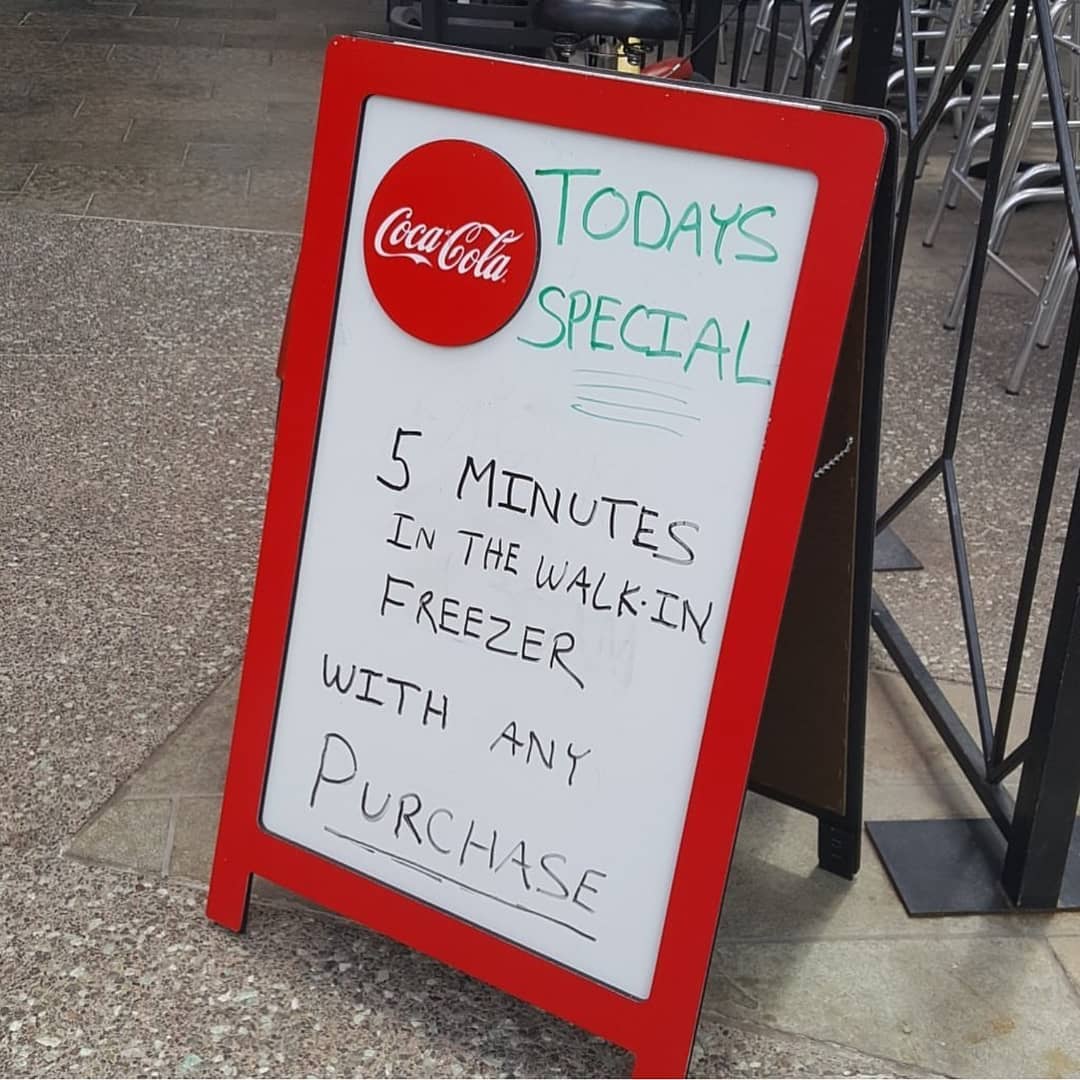 Coca-Cola
TODAYS
SPECIAL
5 MINUTES
IN THE WALK-IN
FREEZER
WITH ANY
PURCHASE